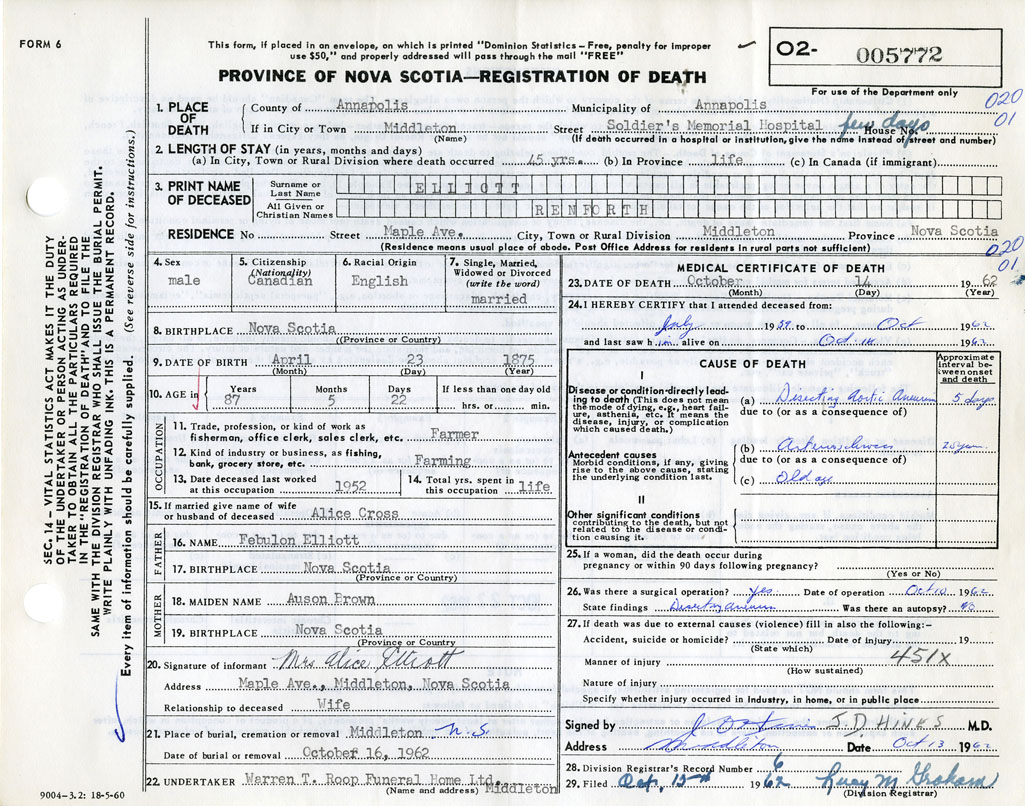 FORM 6
This form, if placed in an envelope, on which is printed "Dominion Statistics – Free, penalty for improper
use $50," and properly addressed will pass through the mail "FREE"
PROVINCE OF NOVA SCOTIA—REGISTRATION OF DEATH
02- 005772
For use of the Department only
020
01
1. PLACE OF DEATH
County of Annapolis Municipality of Annapolis
If in City or Town Middleton Street Soldier's Memorial Hospital House No. few days
(Name) (If death occurred in a hospital or institution, give the name instead of street and number)
2. LENGTH OF STAY (in years, months and days)
(a) In City, Town or Rural Division where death occurred 45 yrs. (b) In Province life (c) In Canada (if immigrant)
3. PRINT NAME OF DECEASED
Surname or Last Name ELLIOTT
All Given or Christian Names RENFORTH
RESIDENCE No Street Maple Ave. City, Town or Rural Division Middleton Province Nova Scotia
(Residence means usual place of abode. Post Office Address for residents in rural parts not sufficient)
020
01
4. Sex male
5. Citizenship (Nationality) Canadian
6. Racial Origin English
7. Single, Married, Widowed or Divorced (write the word) married
8. BIRTHPLACE Nova Scotia
((Province or Country)
9. DATE OF BIRTH April 23 1875
(Month) (Day) (Year)
10. AGE in Years Months Days If less than one day old
87 5 22 hrs. or min.
OCCUPATION
11. Trade, profession, or kind of work as
fisherman, office clerk, sales clerk, etc. Farmer
12. Kind of industry or business, as fishing,
bank, grocery store, etc. Farming
13. Date deceased last worked at this occupation 1952
14. Total yrs. spent in this occupation life
15. If married give name of wife
or husband of deceased Alice Cross
FATHER
16. NAME Febulon Elliott
17. BIRTHPLACE Nova Scotia
(Province or Country)
MOTHER
18. MAIDEN NAME Auson Brown
19. BIRTHPLACE Nova Scotia
(Province or Country)
20. Signature of informant Mrs Alice Elliott
Address Maple Ave., Middleton, Nova Scotia
Relationship to deceased Wife
21. Place of burial, cremation or removal Middleton N.S.
Date of burial or removal October 16, 1962
22. UNDERTAKER Warren T. Roop Funeral Home Ltd. Middleton
(Name and address)
MEDICAL CERTIFICATE OF DEATH
23. DATE OF DEATH October 14 1962
(Month) (Day) (Year)
24. I HEREBY CERTIFY that I attended deceased from:
July 1959 to Oct 1962
and last saw him alive on Oct 14 1962
CAUSE OF DEATH
Approximate interval between onset and death
I
Disease or condition directly leading to death (This does not mean the mode of dying, e.g., heart failure, asthenia, etc. It means the disease, injury, or complication which caused death.)
(a) Disecting Aortic Aneurism 5 days
due to (or as a consequence of)
Antecedent causes
Morbid conditions, if any, giving rise to the above cause, stating the underlying condition last.
(b) 25 years
due to (or as a consequence of)
(c) Old age
II
Other significant conditions
contributing to the death, but not related to the disease or condition causing it.
25. If a woman, did the death occur during
pregnancy or within 90 days following pregnancy?
(Yes or No)
26. Was there a surgical operation? yes Date of operation Oct 10 1962
State findings Disecting aneurism Was there an autopsy? no
27. If death was due to external causes (violence) fill in also the following:–
Accident, suicide or homicide? Date of injury 19
(State which)
Manner of injury 451X
(How sustained)
Nature of injury
Specify whether injury occurred in Industry, in home, or in public place
Signed by J.D. HINKS M.D.
Address Middleton Date Oct 13 1962
28. Division Registrar's Record Number 6
29. Filed Oct. 15th 1962 Lucy M Graham
(Division Registrar)
9004-3.2: 18-5-60
SEC. 14 – VITAL STATISTICS ACT MAKES IT THE DUTY
OF THE UNDERTAKER OR PERSON ACTING AS UNDER-
TAKER TO OBTAIN ALL THE PARTICULARS REQUIRED
IN THE "REGISTRATION OF DEATH" AND TO FILE THE
SAME WITH THE DIVISION REGISTRAR WHO SHALL ISSUE THE BURIAL PERMIT.
WRITE PLAINLY WITH UNFADING INK - THIS IS A PERMANENT RECORD.
Every item of information should be carefully supplied. (See reverse side for instructions.)